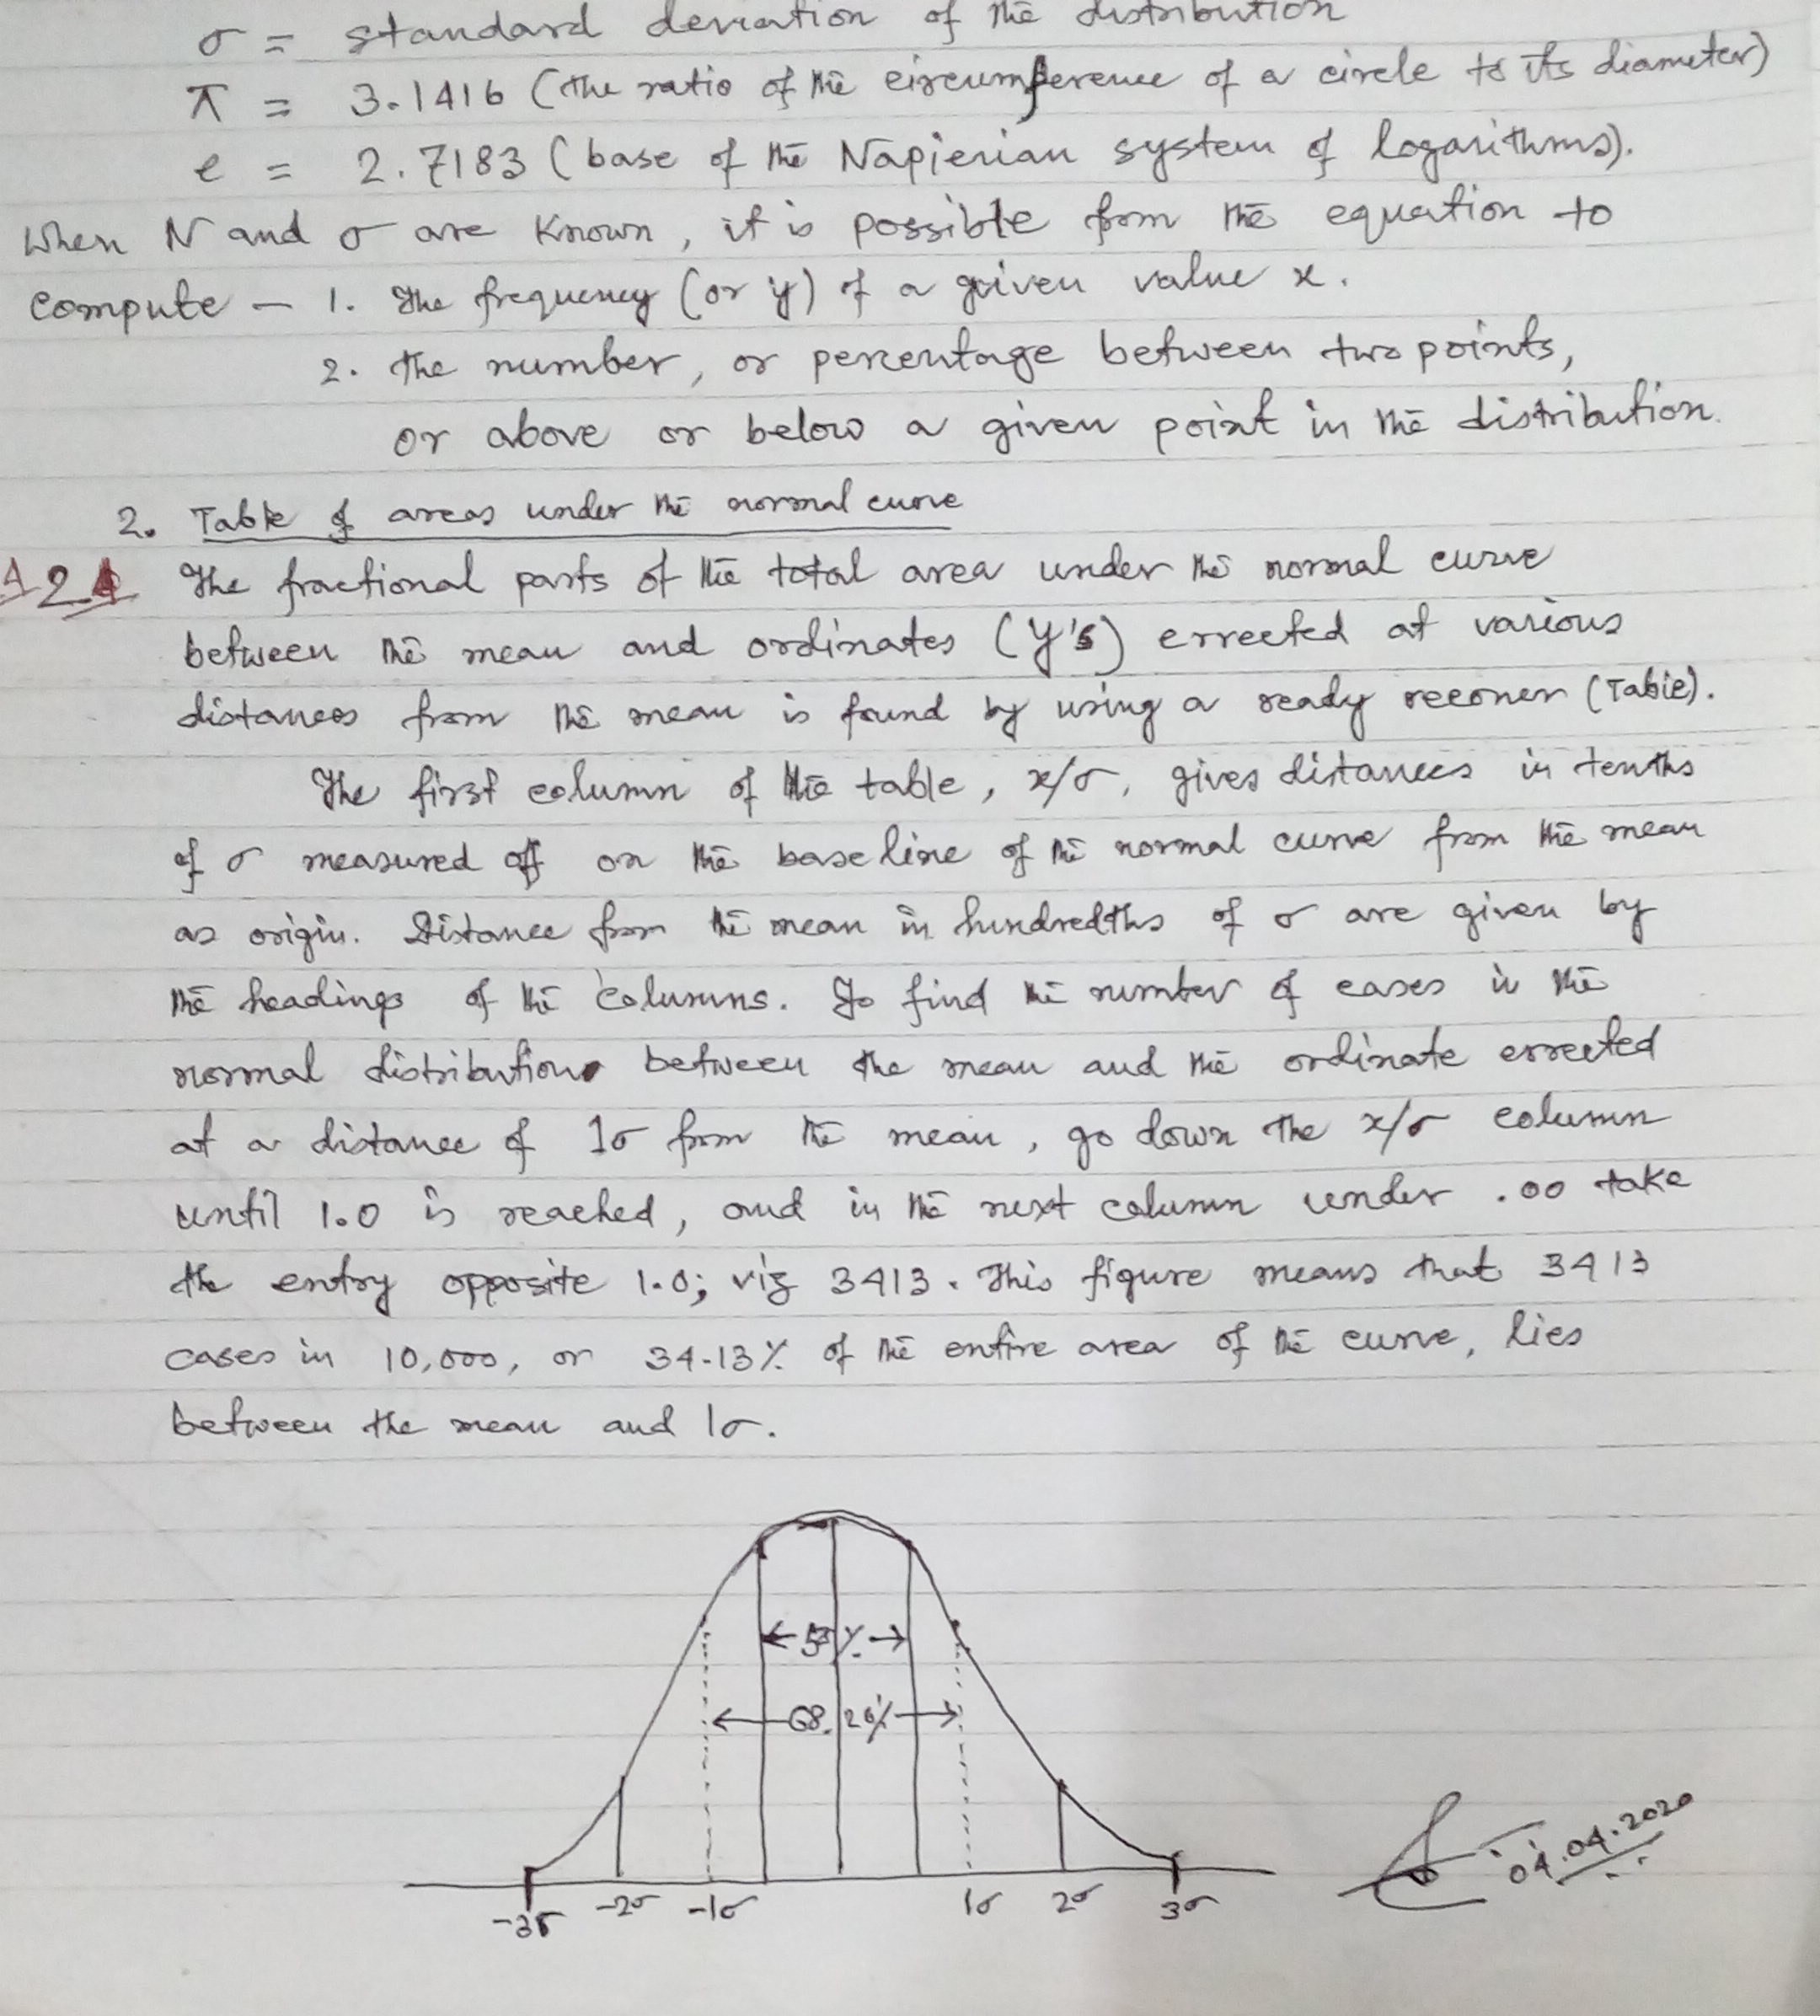 σ = standard deviation of the distribution
π = 3.1416 (the ratio of the circumference of a circle to its diameter)
e = 2.7183 (base of the Napierian system of logarithms).
When N and σ are known, it is possible from the equation to
compute – 1. The frequency (or y) of a given value x.
2. The number, or percentage between two points,
or above or below a given point in the distribution.
2. Table of areas under the normal curve
The fractional parts of the total area under the normal curve
between the mean and ordinates (y's) errected at various
distances from the mean is found by using a ready reconer (Table).
The first column of the table, x/σ, gives distances in tenths
of σ measured off on the base line of the normal curve from the mean
as origin. Distance from the mean in hundredths of σ are given by
the headings of the columns. To find the number of cases in the
normal distribution between the mean and the ordinate errected
at a distance of 1σ from the mean, go down the x/σ column
until 1.0 is reached, and in the next column under .00 take
the entry opposite 1.0; viz 3413. This figure means that 3413
cases in 10,000, or 34.13% of the entire area of the curve, lies
between the mean and 1σ.
68.26%
-3σ -2σ -1σ 1σ 2σ 3σ
04.04.2020